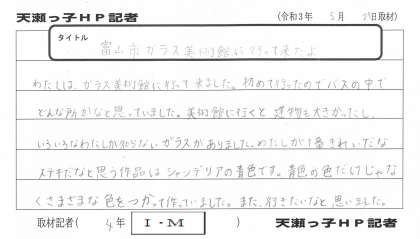 天瀬っ子HP記者 (令和3年 5月 日取材)
タイトル
富山市ガラス美術館に行って来たよ
わたしは、ガラス美術館に行って来ました。初めて行ったのでバスの中で
どんな所かなと思っていました。美術館に行くと建物も大きかったし、
いろいろなわたしが知らないガラスがありました。わたしが1番きれいだな
ステキだなと思う作品はシャンデリアの青色です。青色の色だけじゃな
くさまざまな色をつかって作っていました。また、行きたいなと思いました。
取材記者( 4年 I-M ) 天瀬っ子HP記者